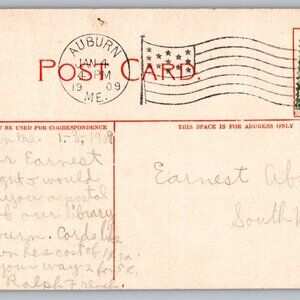 AUBURN
JAN 4
4 PM
1909
ME.
POST CARD.
BE USED FOR CORRESPONDENCE
THIS SPACE IS FOR ADDRESS ONLY
Me. 1-3, 1909
Earnest
would
you a postal
of our library
burn. Cards like
here cost of
your way 2 for 5¢.
Ralph French
Earnest Ab
South